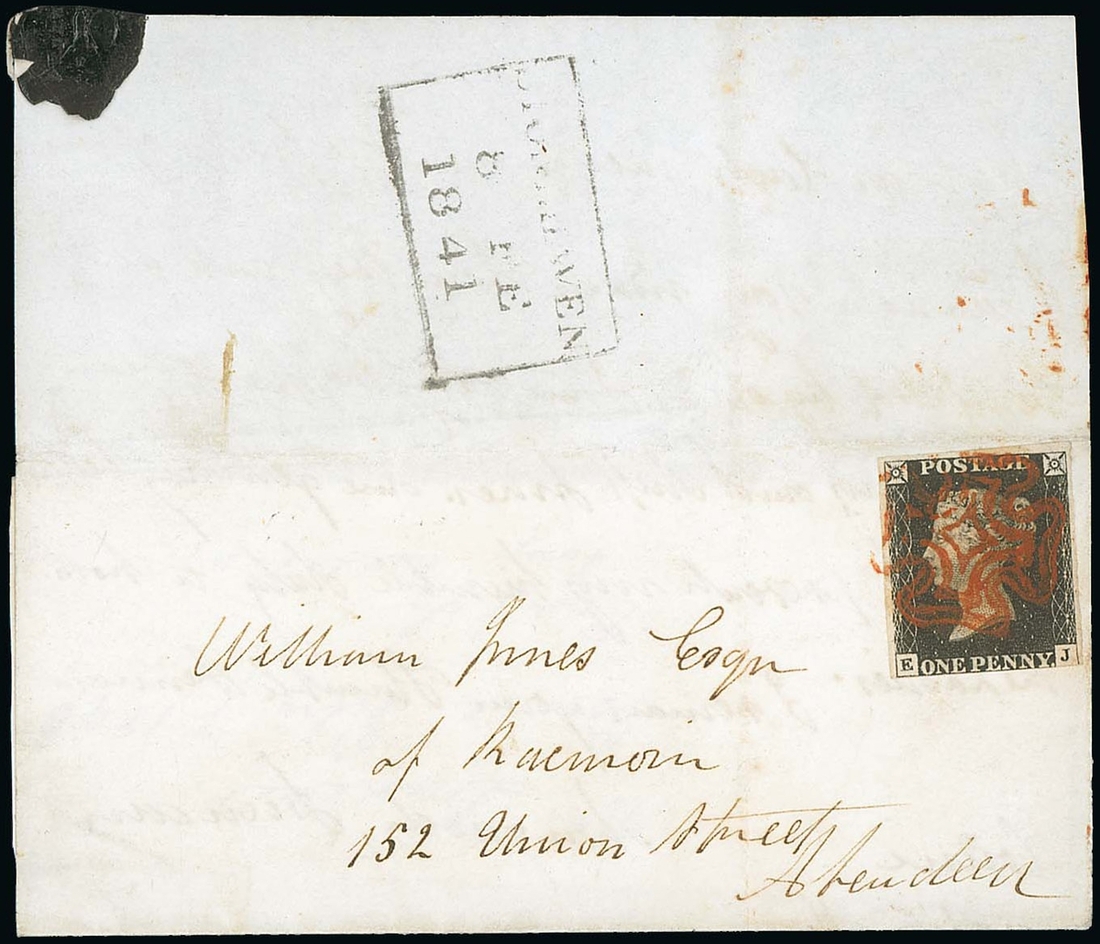 8 FE
1841
POSTAGE
E ONE PENNY J
William Innes Esqr
of Raemoir
152 Union Street
Aberdeen